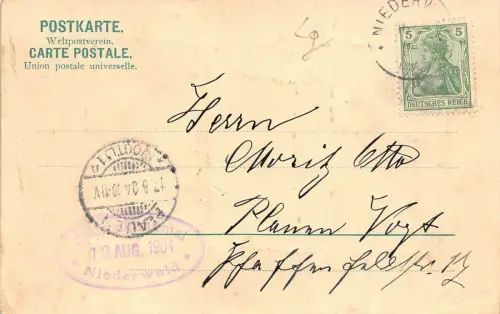 POSTKARTE.
Weltpostverein.
CARTE POSTALE.
Union postale universelle.
NIEDERW
5 5
DEUTSCHES REICH
Herrn
Moritz Otto
Plauen Vogt
Pfaffenfeldstr. 17
PLAUEN
(VOGTL.) 1
17.8.04.10-11V
10 AUG. 1904
Niederwald